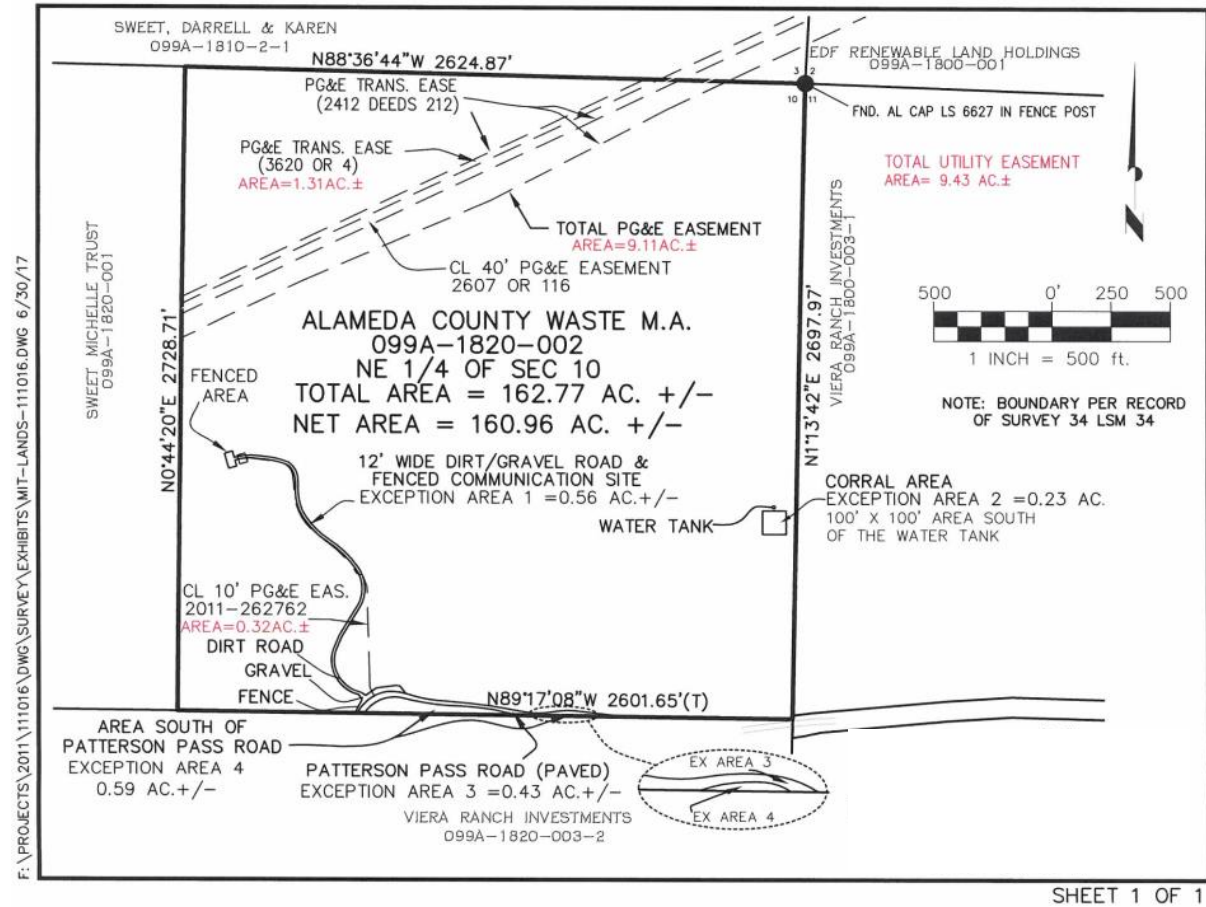 SWEET, DARRELL & KAREN
099A-1810-2-1
N88°36'44"W 2624.87'
EDF RENEWABLE LAND HOLDINGS
099A-1800-001
3 2
10 11
FND. AL CAP LS 6627 IN FENCE POST
PG&E TRANS. EASE
(2412 DEEDS 212)
PG&E TRANS. EASE
(3620 OR 4)
AREA=1.31AC.±
TOTAL UTILITY EASEMENT
AREA= 9.43 AC.±
TOTAL PG&E EASEMENT
AREA=9.11AC.±
CL 40' PG&E EASEMENT
2607 OR 116
SWEET MICHELLE TRUST
099A-1820-001
N0°44'20"E 2728.71'
N1°13'42"E 2697.97'
VIERA RANCH INVESTMENTS
099A-1800-003-1
500 0' 250 500
1 INCH = 500 ft.
NOTE: BOUNDARY PER RECORD
OF SURVEY 34 LSM 34
ALAMEDA COUNTY WASTE M.A.
099A-1820-002
NE 1/4 OF SEC 10
TOTAL AREA = 162.77 AC. +/-
NET AREA = 160.96 AC. +/-
FENCED
AREA
12' WIDE DIRT/GRAVEL ROAD &
FENCED COMMUNICATION SITE
EXCEPTION AREA 1 =0.56 AC.+/-
WATER TANK
CORRAL AREA
EXCEPTION AREA 2 =0.23 AC.
100' X 100' AREA SOUTH
OF THE WATER TANK
CL 10' PG&E EAS.
2011-262762
AREA=0.32AC.±
DIRT ROAD
GRAVEL
FENCE
N89°17'08"W 2601.65'(T)
AREA SOUTH OF
PATTERSON PASS ROAD
EXCEPTION AREA 4
0.59 AC.+/-
PATTERSON PASS ROAD (PAVED)
EXCEPTION AREA 3 =0.43 AC.+/-
VIERA RANCH INVESTMENTS
099A-1820-003-2
EX AREA 3
EX AREA 4
F:\PROJECTS\2011\111016\DWG\SURVEY\EXHIBITS\MIT-LANDS-111016.DWG 6/30/17
SHEET 1 OF 1